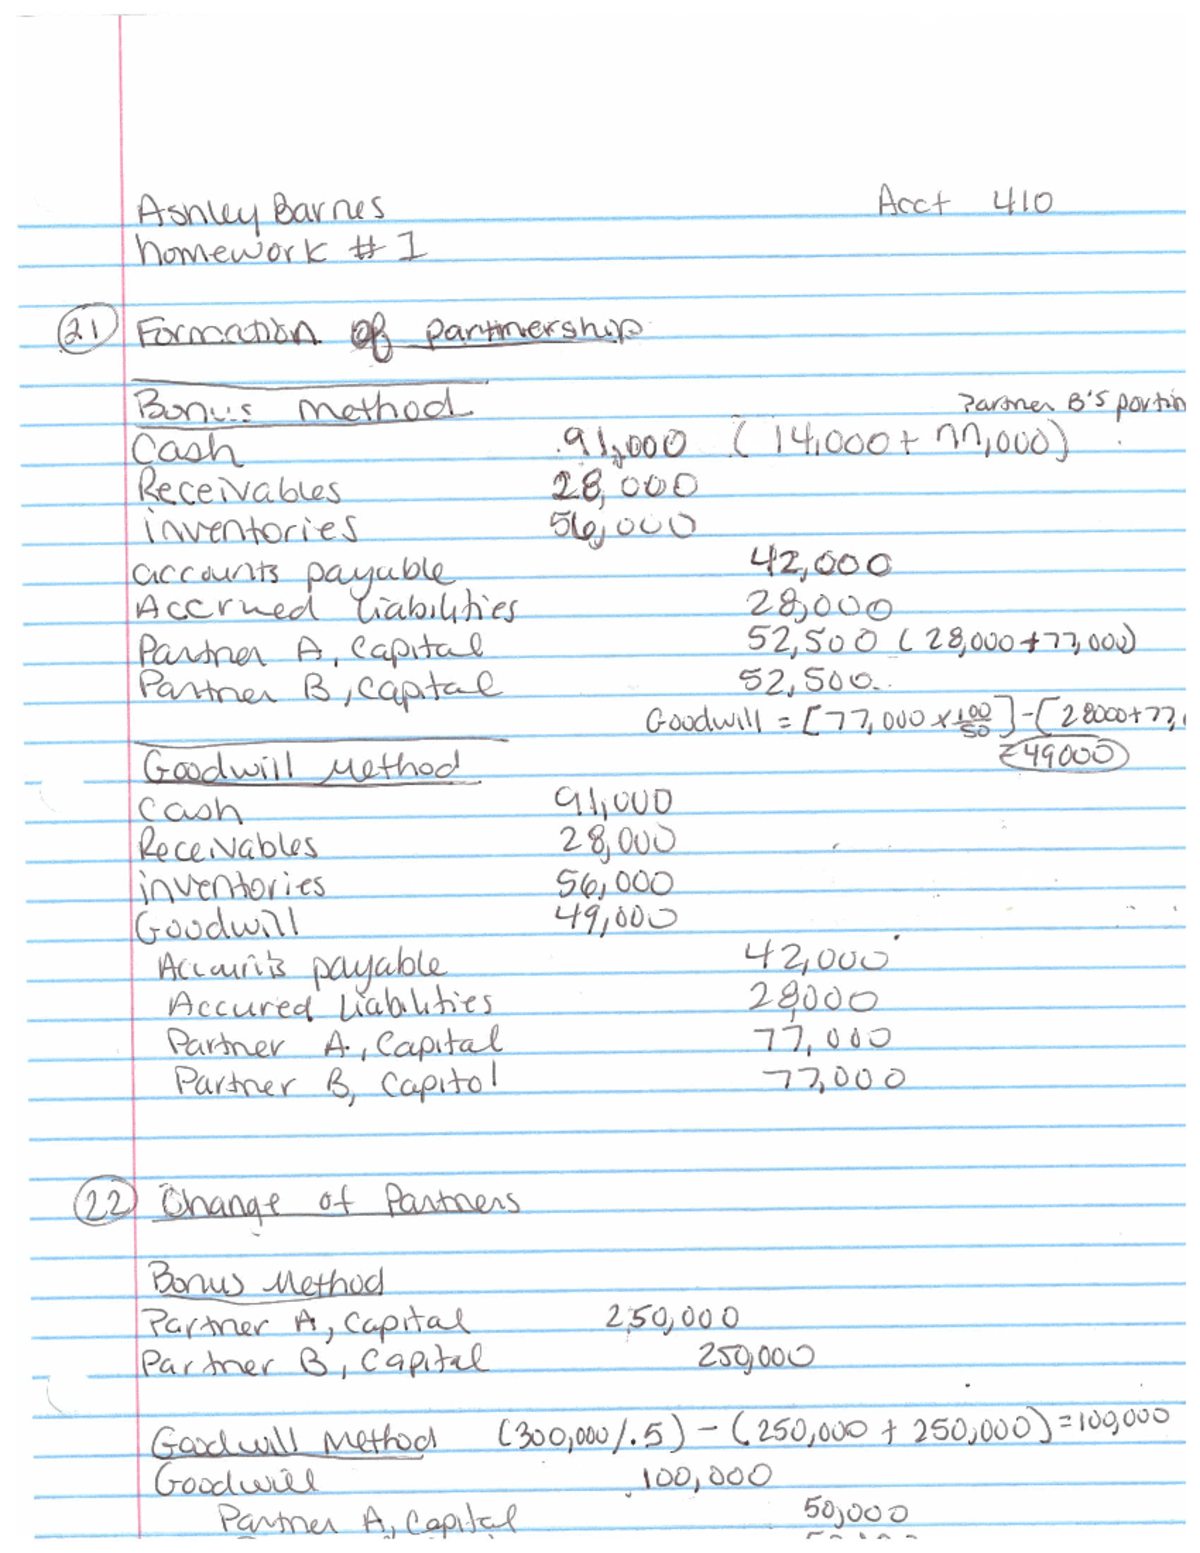 Ashley Barnes Acct 410
homework # 1
21 Formation of partnership
Bonus method Partner B's portin
Cash 91,000 (14,000 + 77,000)
Receivables 28,000
inventories 56,000
accounts payable 42,000
Accrued liabilities 28,000
Partner A, Capital 52,500 (28,000+77,000)
Partner B, Capital 52,500
Goodwill = [77,000 x 100/50] - [28000+77,
=49000
Goodwill Method
Cash 91,000
Receivables 28,000
inventories 56,000
Goodwill 49,000
Accounts payable 42,000
Accured Liabilities 28000
Partner A, Capital 77,000
Partner B, Capitol 77,000
22 Change of Partners
Bonus Method
Partner A, Capital 250,000
Partner B, Capital 250,000
Goodwill Method (300,000/.5) - (250,000 + 250,000) = 100,000
Goodwill 100,000
Partner A, Capital 50,000